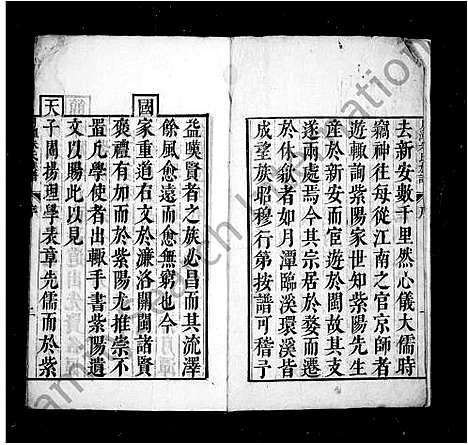 去新安數千里然心儀大儒時
竊神往每從江南之官京師者
遊輙詢紫陽家世知紫陽先生
產於新安而宦遊於閩故其支
遂兩處焉今其宗居於婺而遷
於休歙者如月潭臨溪環溪皆
成望族昭穆行第按譜可稽予
益嘆賢者之族必昌而其流澤
餘風愈遠而愈無窮也今
國家重道右文於濂洛關閩諸賢
褒禮有加而於紫陽尤推崇不
置凡學使者出輙手書紫陽遺
文以賜此以見
天子闡揚理學表章先儒而於紫